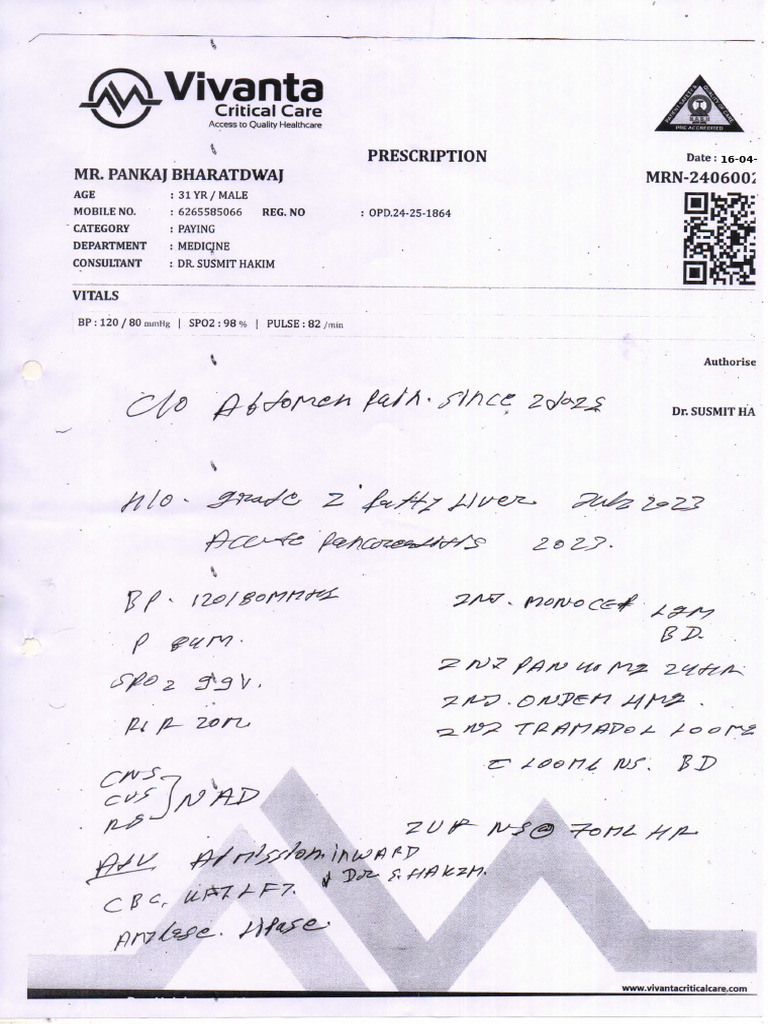 Vivanta
Critical Care
Access to Quality Healthcare
PRE ACCREDITED
PRESCRIPTION
Date : 16-04-
MR. PANKAJ BHARATDWAJ
MRN-2406002
AGE : 31 YR / MALE
MOBILE NO. : 6265585066 REG. NO : OPD.24-25-1864
CATEGORY : PAYING
DEPARTMENT : MEDICINE
CONSULTANT : DR. SUSMIT HAKIM
VITALS
BP : 120 / 80 mmHg | SPO2 : 98 % | PULSE : 82 /min
Authorise
Dr. SUSMIT HA
C/O Abdomen Pain. since 2 days
H/O - grade 2 fatty Liver July 2023
Accute Pancreatitis 2023.
BP - 120/80MMHG
INJ. MONOCEF 1GM
BD.
P 84M.
INJ PAN 40MG 24HR
SPO2 99%.
INJ. ONDEM 4MG.
R/R 20M
INJ TRAMADOL 100MG
c 100ML NS. BD
CNS
CVS
RS
NAD
IVF NS@ 70ML HR
Adv Admission in WARD
Dr S. HAKIM.
CBC, KFT LFT.
Amylase. Lipase.
www.vivantacriticalcare.com